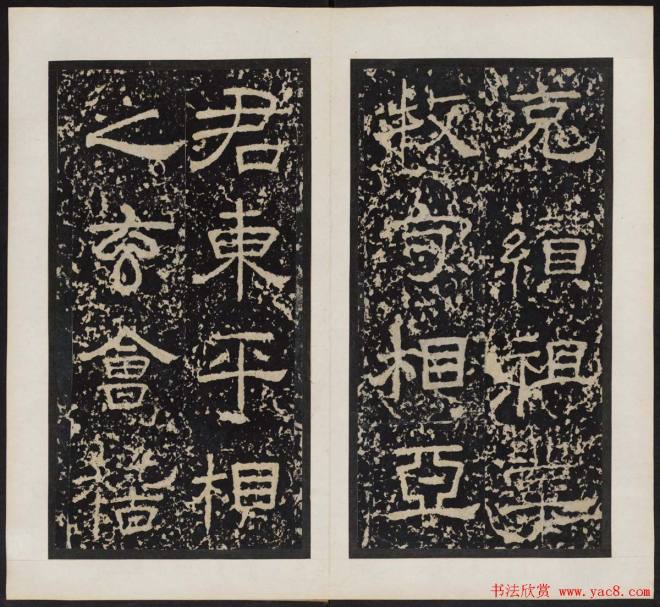 克纘祖業
牧守相亞
君東平相
之玄會稽
书法欣赏 www.yac8.com